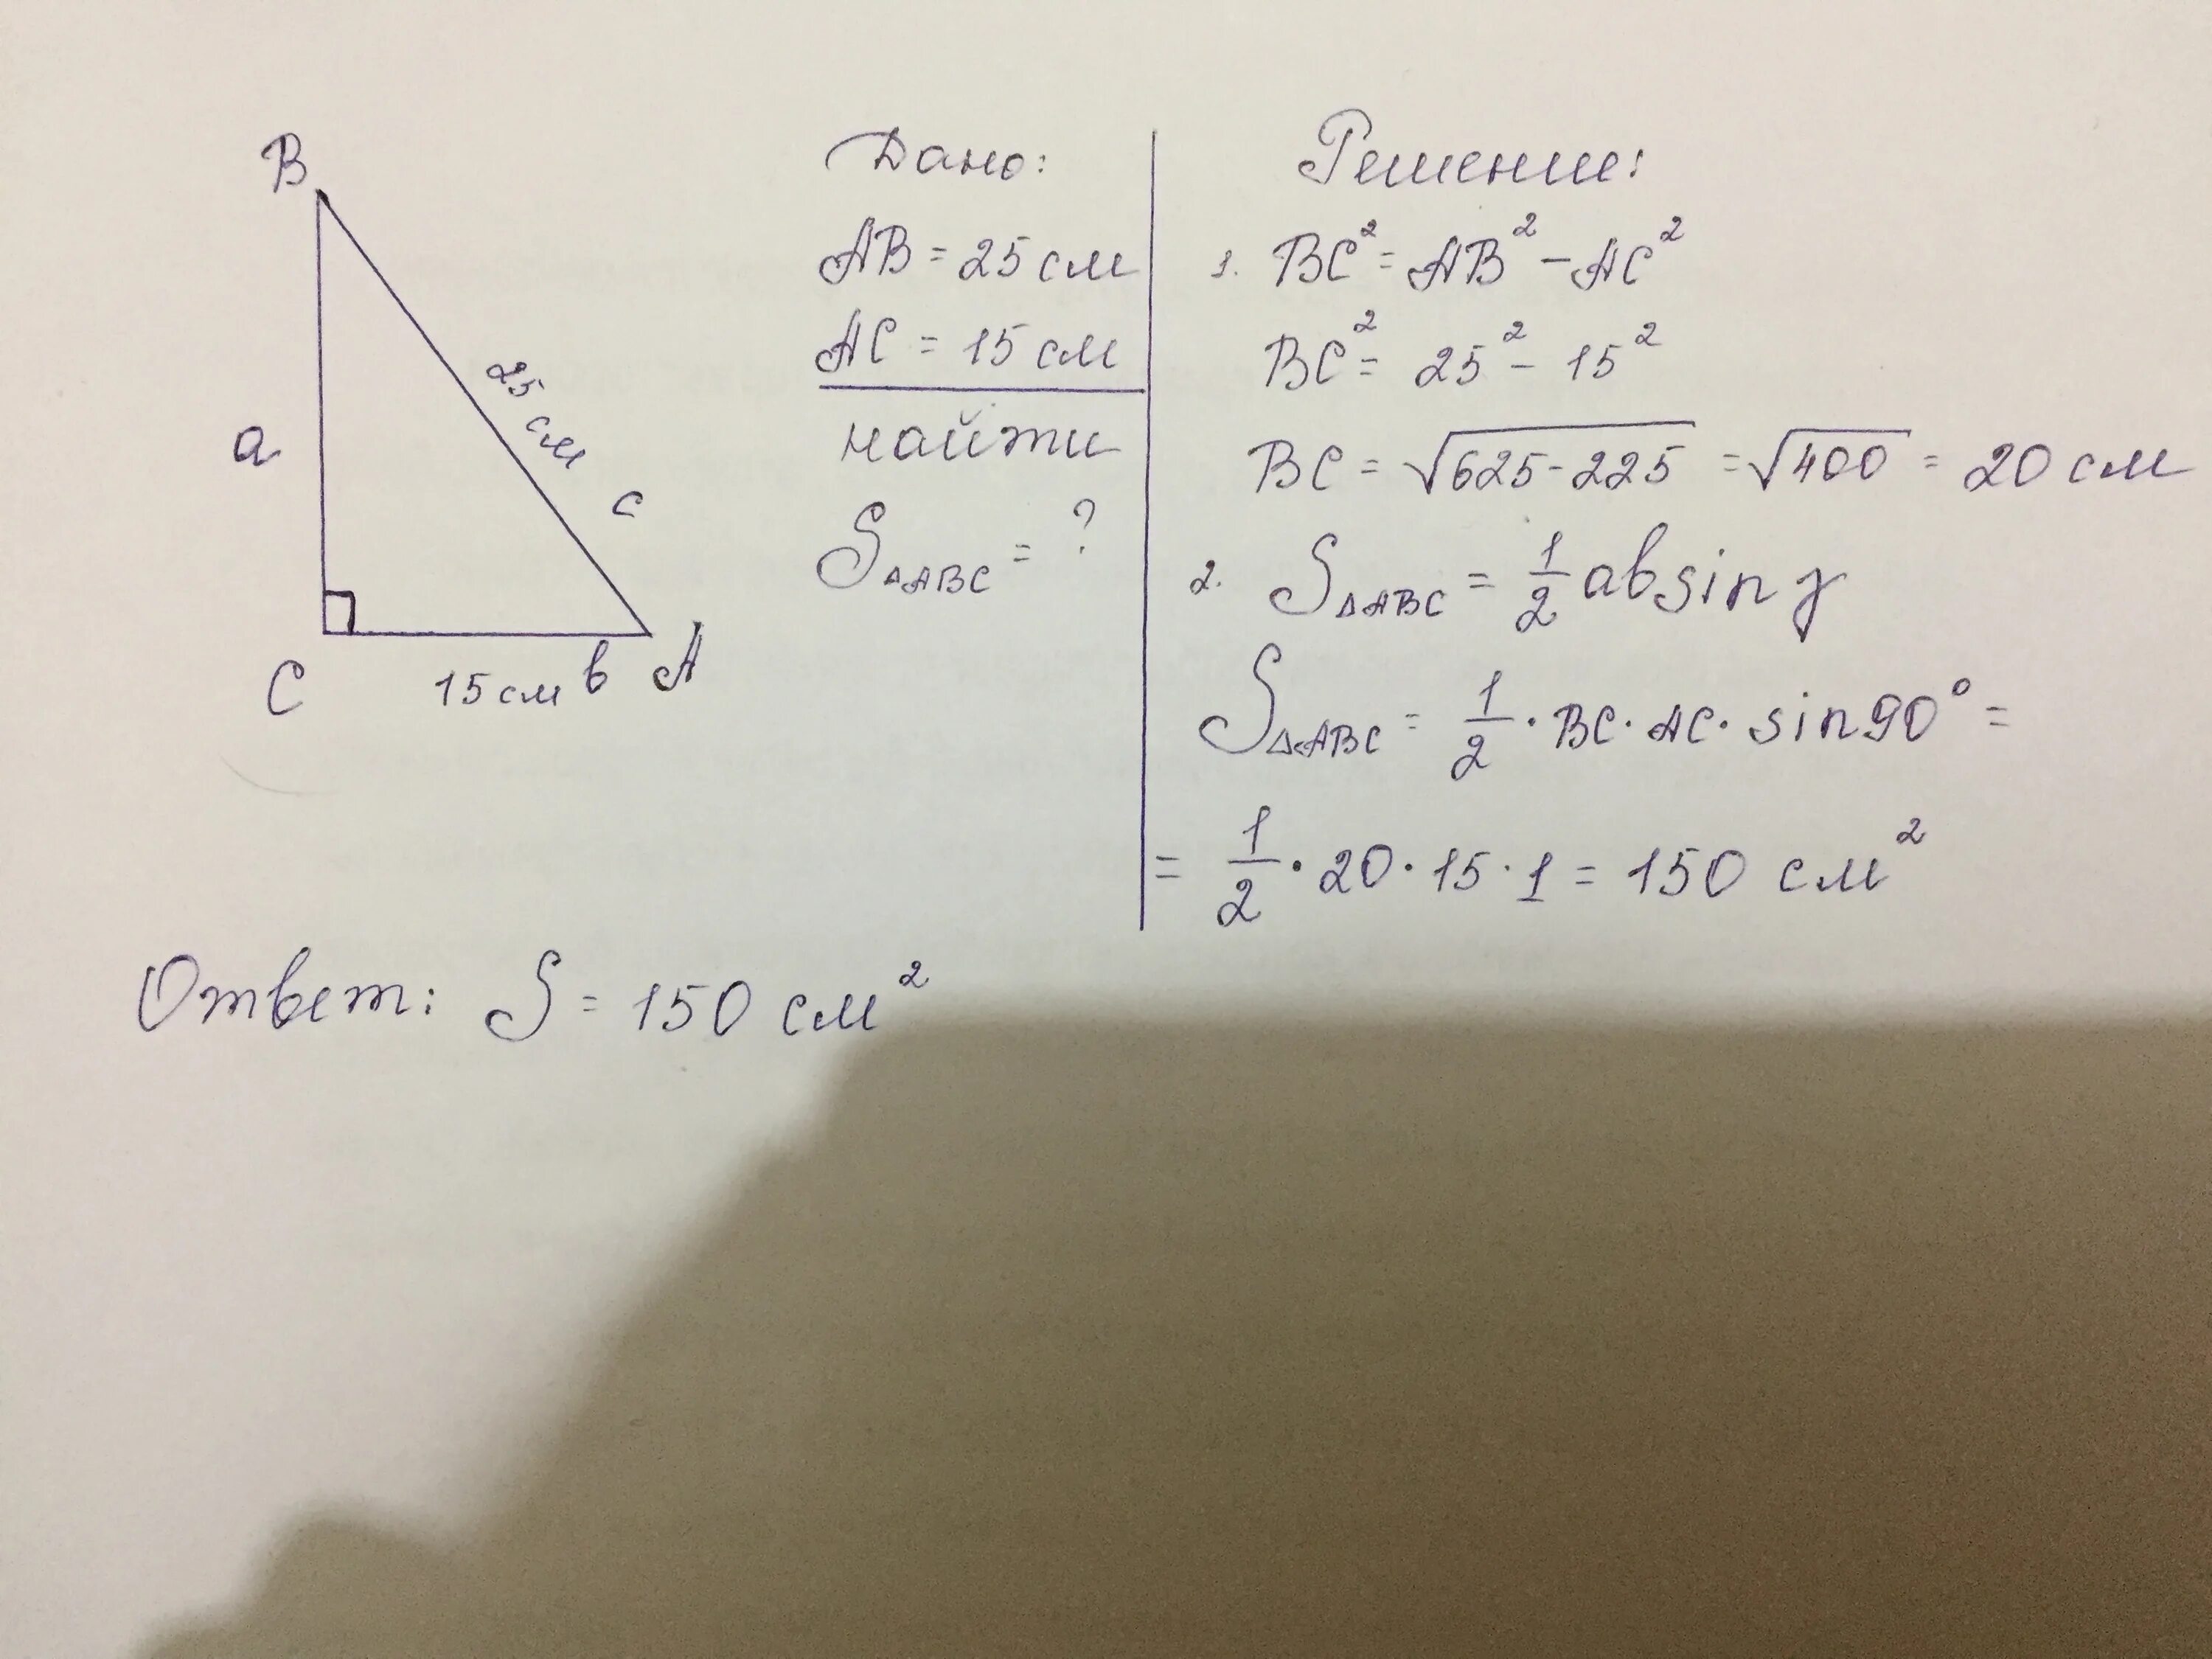 B
a
25 см
c
C
15 см b
A
Дано:
AB = 25 см
AC = 15 см
найти
S△ABC = ?
Решение:
1. BC² = AB² − AC²
BC² = 25² − 15²
BC = √625-225 = √400 = 20 см
2. S△ABC = 1/2 ab sin γ
S△ABC = 1/2 · BC · AC · sin 90° =
= 1/2 · 20 · 15 · 1 = 150 см²
Ответ: S = 150 см²